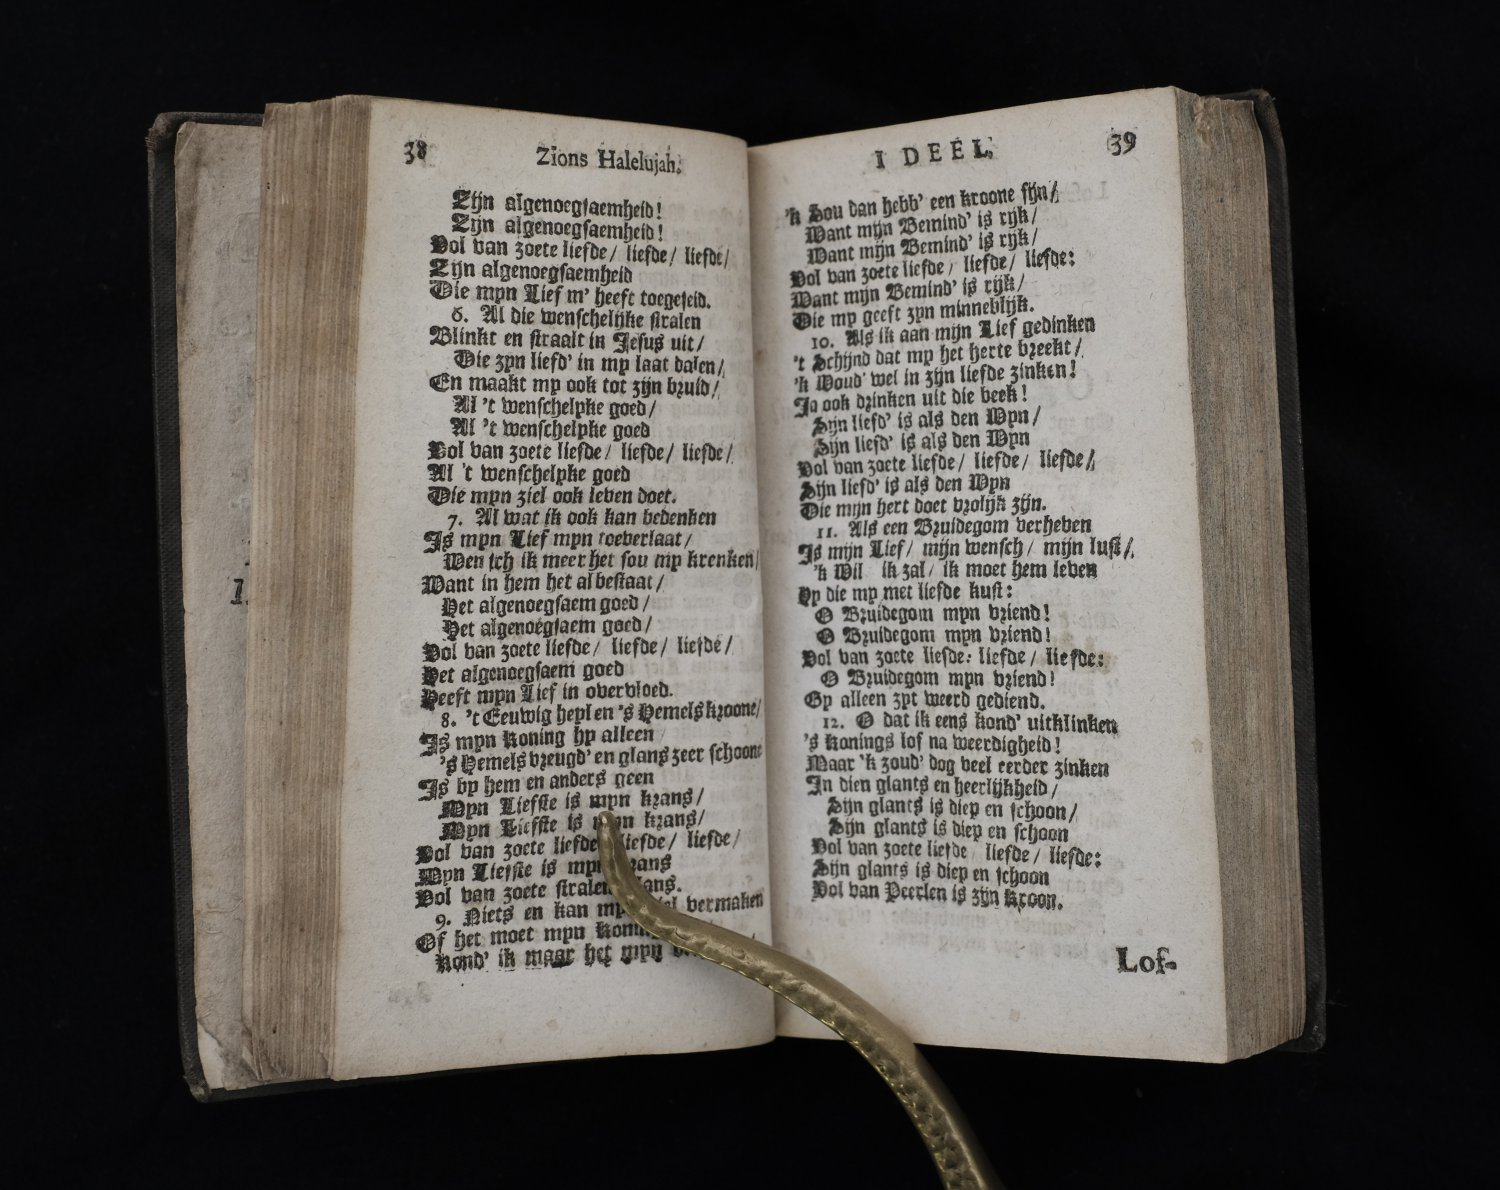 38
Zions Halelujah.
Zijn algenoegsaemheid!
Zijn algenoegsaemheid!
Vol van zoete liefde/ liefde/ liefde/
Zijn algenoegsaemheid
Die myn Lief m' heeft toegeseid.
6. Al die wenschelijke stralen
Blinkt en straalt in Jesus uit/
Die zyn liefd' in my laat dalen/
En maakt my ook tot zijn bruid/
Al 't wenschelyke goed/
Al 't wenschelyke goed
Vol van zoete liefde/ liefde/ liefde/
Al 't wenschelyke goed
Die myn ziel ook leven doet.
7. Al wat ik ook kan bedenken
Is myn Lief myn toeverlaat/
Wensch ik meer het sou my krenken/
Want in hem het al bestaat/
Het algenoegsaem goed/
Het algenoegsaem goed/
Vol van zoete liefde/ liefde/ liefde/
Het algenoegsaem goed
Heeft myn Lief in overvloed.
8. 't Eeuwig heyl en 's Hemels kroone/
Is myn Koning hy alleen
's Hemels vreugd' en glans zeer schoone
Is by hem en anders geen
Myn Liefste is myn krans/
Myn Liefste is myn krans/
Vol van zoete liefde liefde/ liefde/
Myn Liefste is myn krans
Vol van zoete stralen glans.
9. Niets en kan my ziel vermaken
Of het moet myn
Kond' ik maar het myn
I DEEL.
39
'k Sou dan hebb' een kroone fijn/
Want mijn Bemind' is rijk/
Want mijn Bemind' is rijk/
Vol van zoete liefde/ liefde/ liefde:
Want mijn Bemind' is rijk/
Die my geeft zyn minneblijk.
10. Als ik aan mijn Lief gedinken
't Schijnd dat my het herte breekt/
'k Woud' wel in zijn liefde zinken!
Ja ook drinken uit die beek!
Sijn liefd' is als den Wyn/
Sijn liefd' is als den Wyn
Vol van zoete liefde/ liefde/ liefde/
Sijn liefd' is als den Wyn
Die mijn hert doet vrolijk zijn.
11. Als een Bruidegom verheven
Is mijn Lief/ mijn wensch/ mijn lust/
'k Wil ik zal/ ik moet hem leven
Hy die my met liefde kust:
O Bruidegom myn vriend!
O Bruidegom myn vriend!
Vol van zoete liefde: liefde/ liefde:
O Bruidegom myn vriend!
Gy alleen zyt weerd gediend.
12. O dat ik eens kond' uitklinken
's Konings lof na weerdigheid!
Maar 'k zoud' dog veel eerder zinken
In dien glants en heerlijkheid/
Sijn glants is diep en schoon/
Sijn glants is diep en schoon
Vol van zoete liefde liefde/ liefde:
Sijn glants is diep en schoon
Vol van Peerlen is zijn kroon.
Lof-